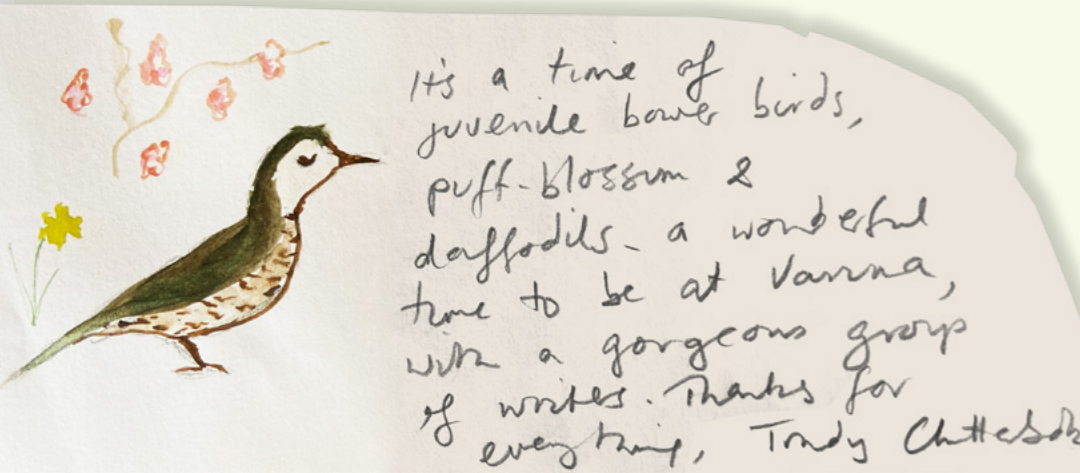 It's a time of
juvenile bower birds,
puff-blossom &
daffodils - a wonderful
time to be at Varuna,
with a gorgeous group
of writers. Thanks for
everything, Trudy